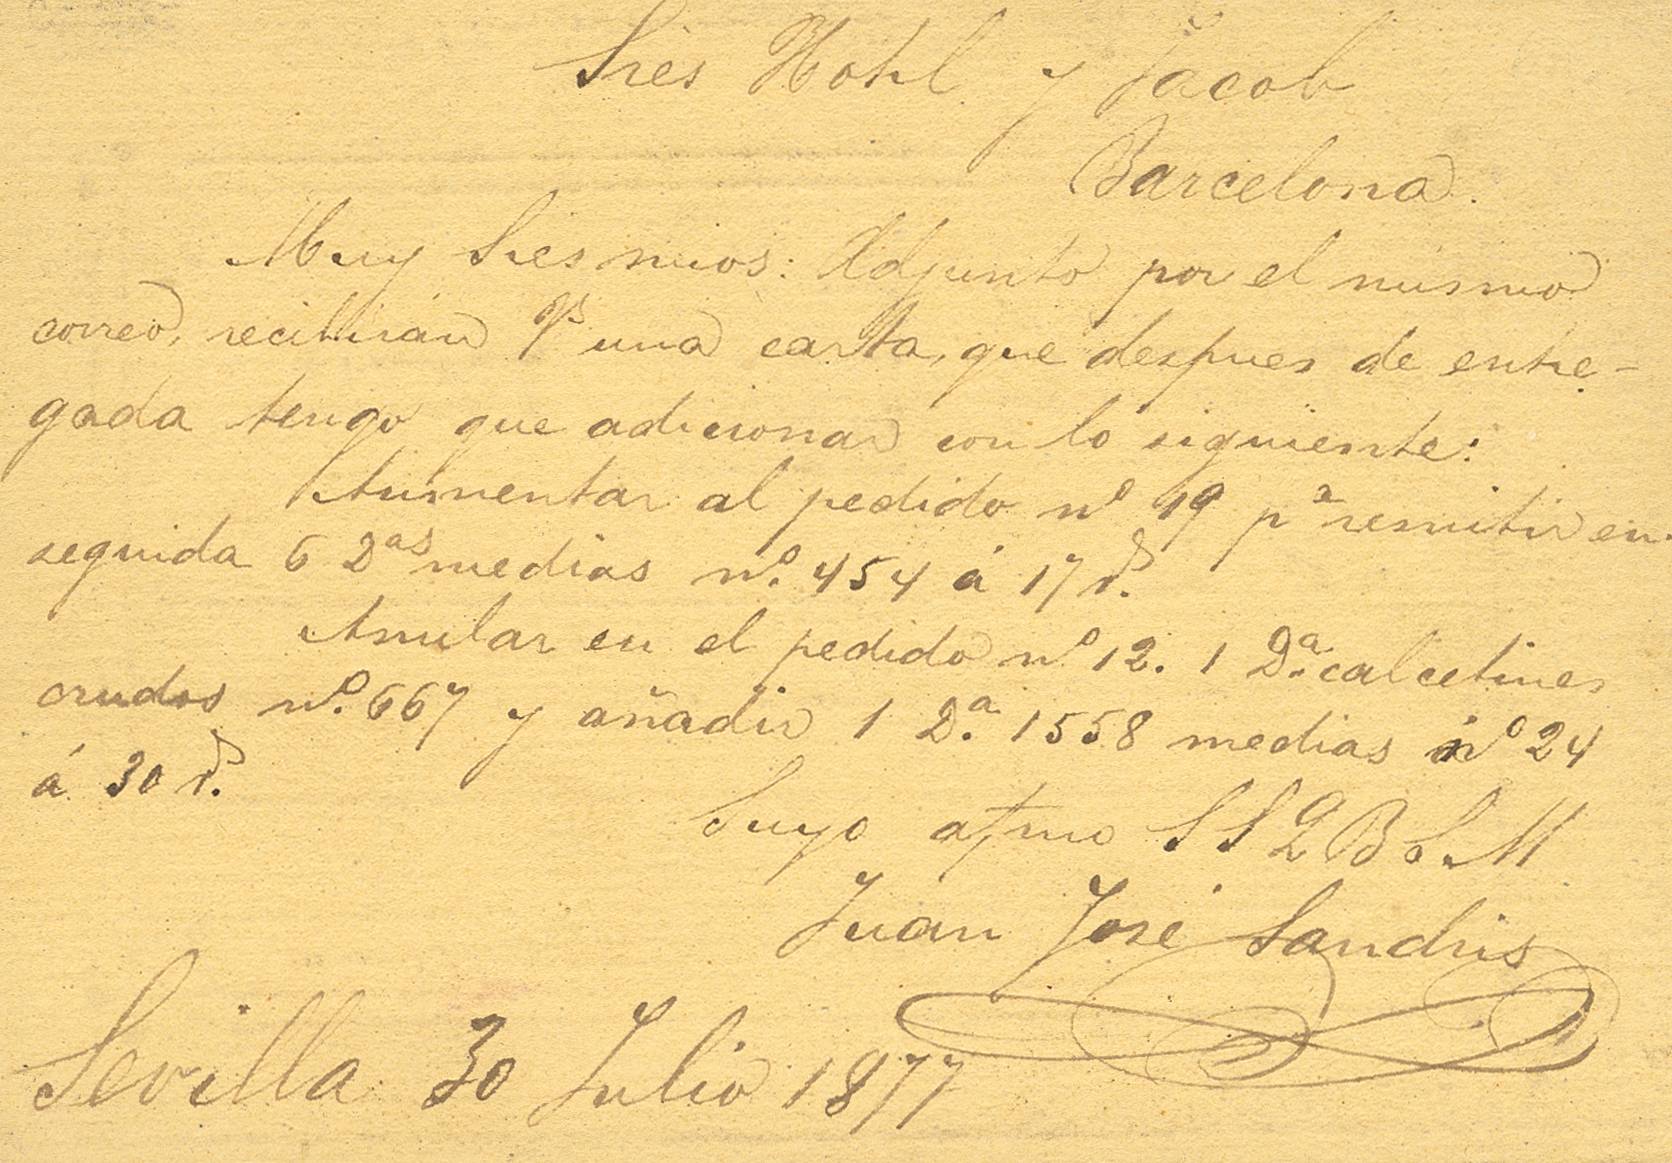 Sres Hohl y Jacob
Barcelona.
Muy Sres mios: Adjunto por el mismo
correo, recibirán Vs una carta, que despues de entre-
gada tengo que adicionar con lo siguiente:
Aumentar al pedido nº 19 pª remitir en
seguida 6 Dªs medias nº. 454 á 17 rs.
Anular en el pedido nº 12. 1 Dª. calcetines
crudos nº. 667 y añadir 1 Dª. 1558 medias nº 24
á 30 rs.
Suyo afmo S S Q B S M
Juan José Sandris
Sevilla 30 Julio 1877